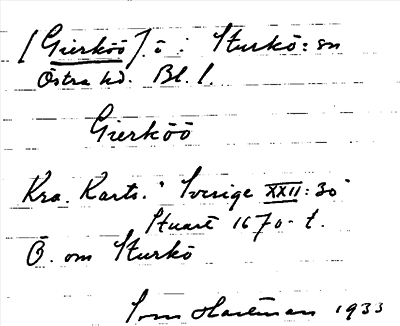 [Gierköö] ö i Sturkö: sn
Östra hd. Bl. l.
Gierköö
Kra. Karts. Sverige XXII: 30
Stuart 1670-t.
Ö. om Sturkö
Hartman 1933